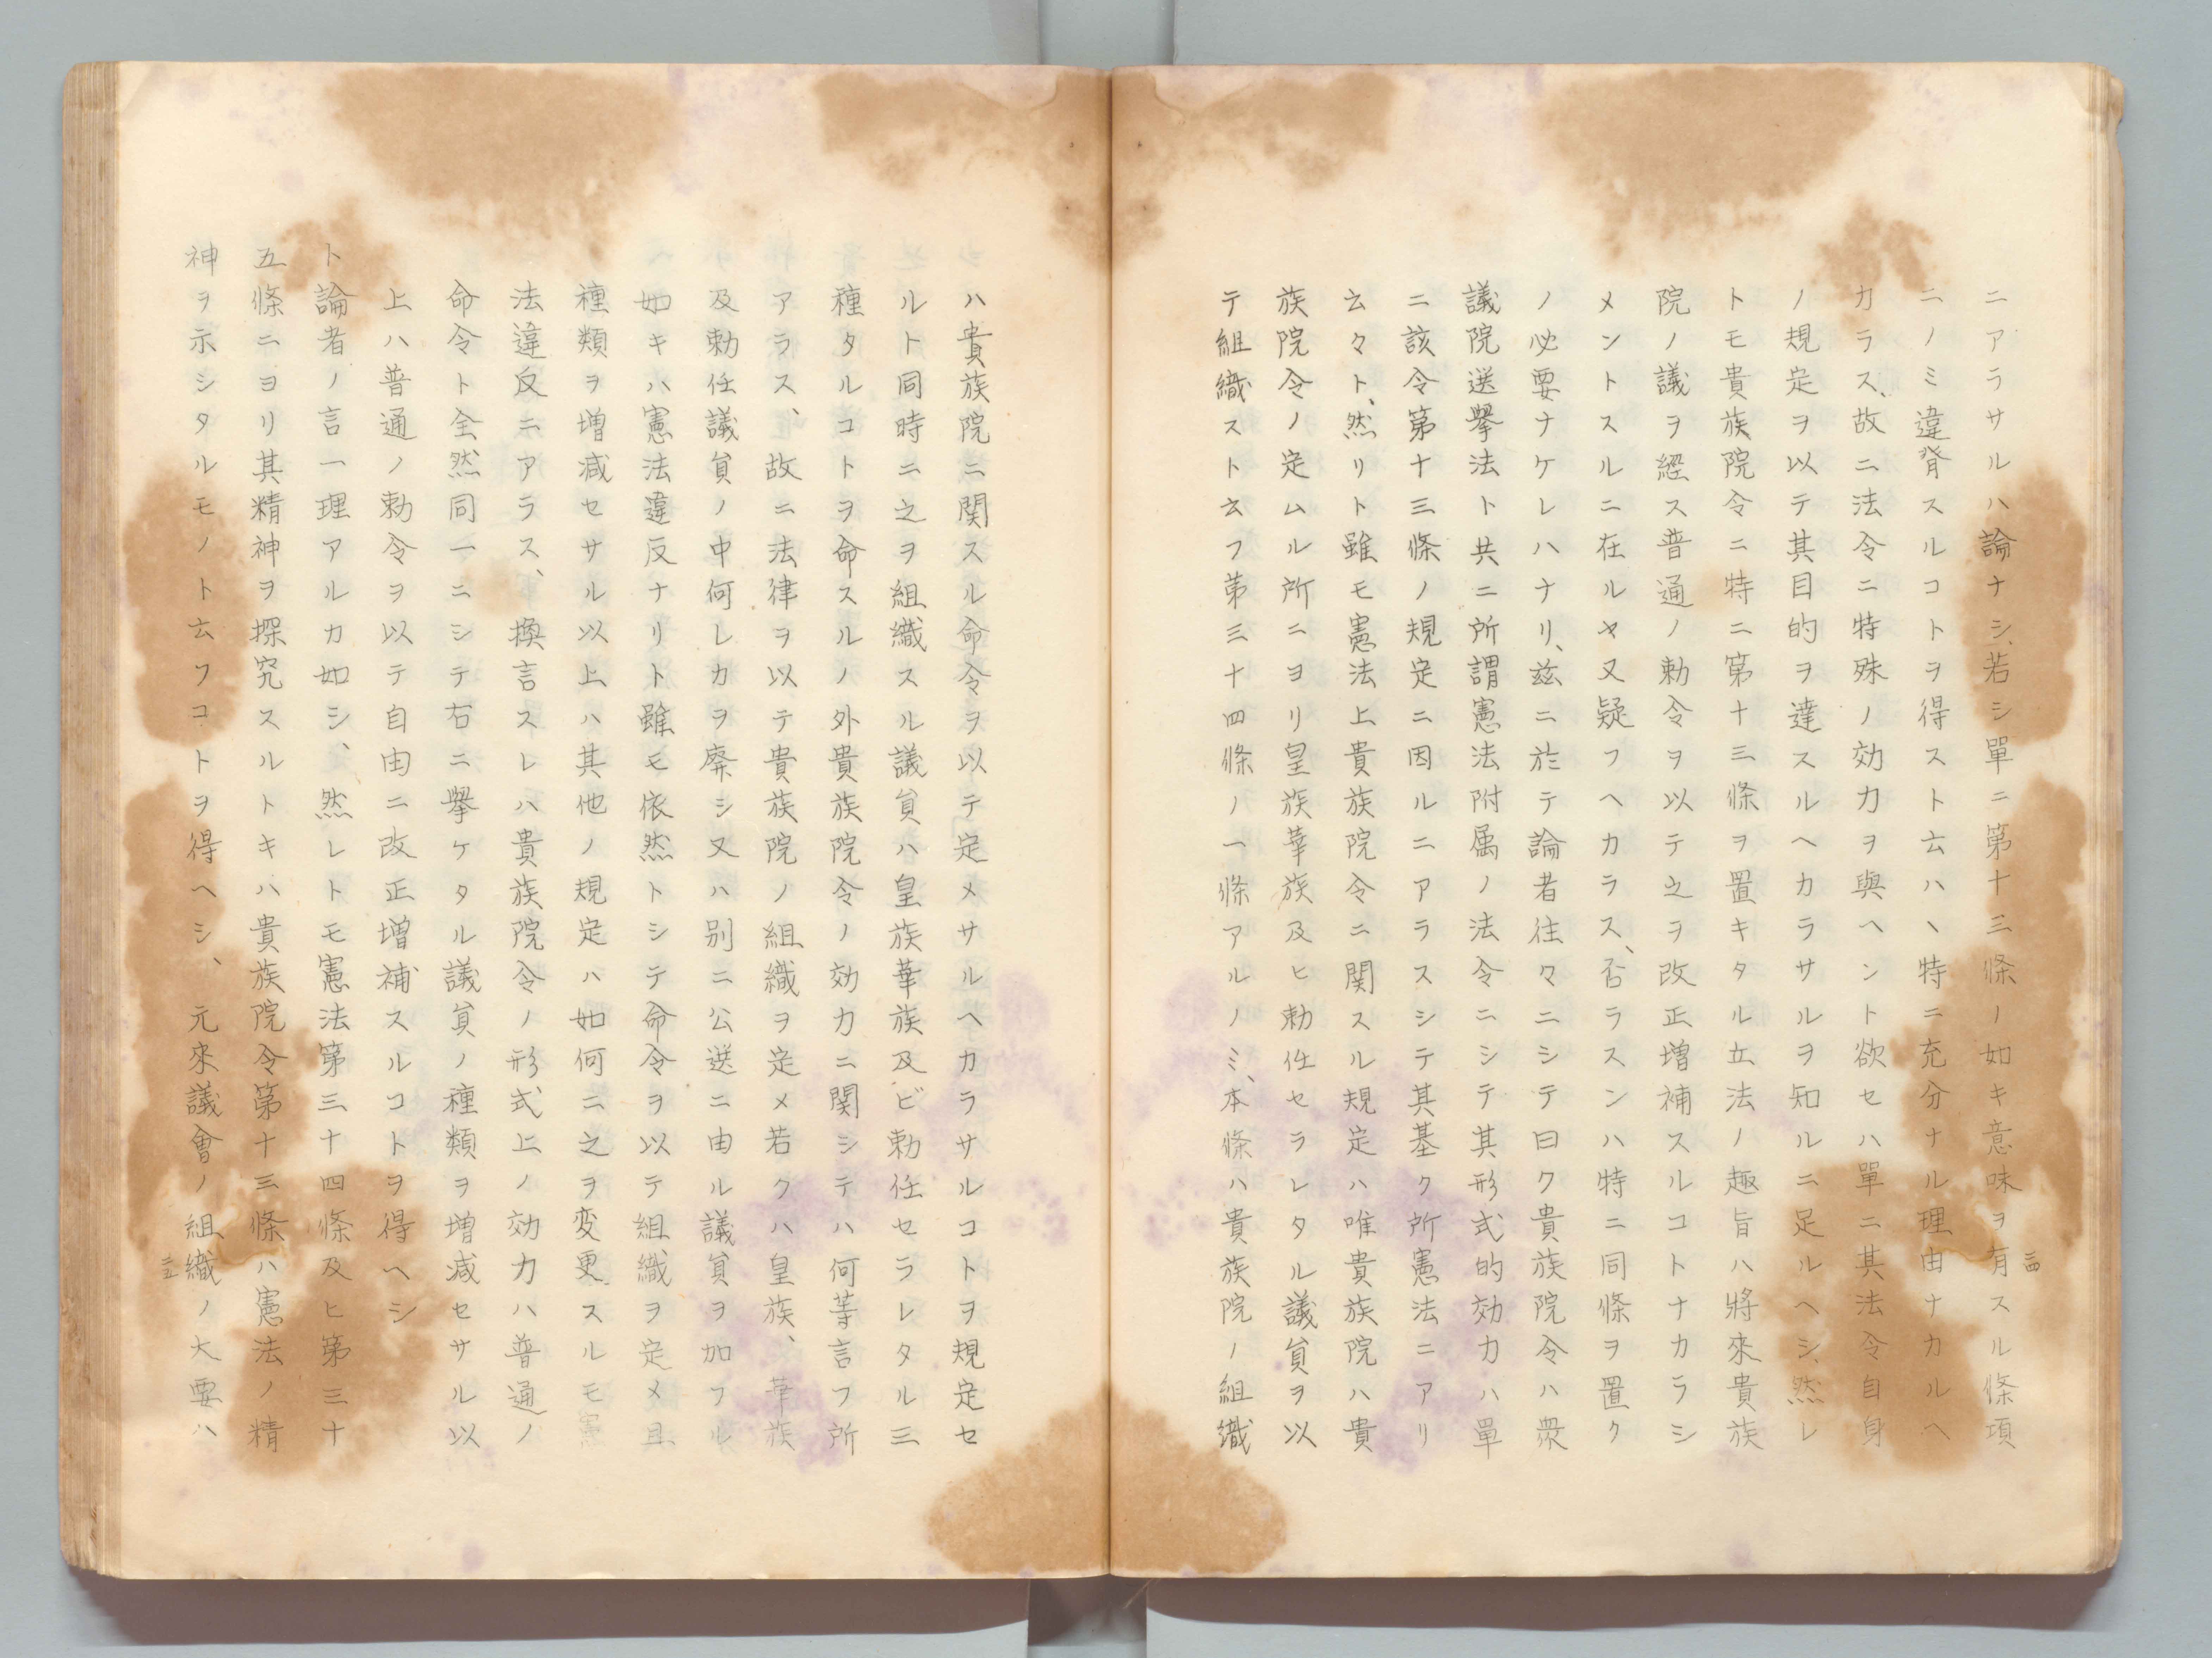 ニアラサルハ論ナシ、若シ單ニ第十三條ノ如キ意味ヲ有スル條項
ニノミ違背スルコトヲ得スト云ハヽ特ニ充分ナル理由ナカルヘ
カラス、故ニ法令ニ特殊ノ効力ヲ與ヘント欲セハ單ニ其法令自身
ノ規定ヲ以テ其目的ヲ達スルヘカラサルヲ知ルニ足ルヘシ、然レ
トモ貴族院令ニ特ニ第十三條ヲ置キタル立法ノ趣旨ハ將來貴族
院ノ議ヲ經ス普通ノ勅令ヲ以テ之ヲ改正増補スルコトナカラシ
メントスルニ在ルヤ又疑フヘカラス、否ラスンハ特ニ同條ヲ置ク
ノ必要ナケレハナリ、玆ニ於テ論者往々ニシテ曰ク貴族院令ハ衆
議院選擧法ト共ニ所謂憲法附属ノ法令ニシテ其形式的効力ハ單
ニ該令第十三條ノ規定ニ因ルニアラスシテ其基ク所憲法ニアリ
云々ト、然リト雖モ憲法上貴族院令ニ関スル規定ハ唯貴族院ハ貴
族院令ノ定ムル所ニヨリ皇族華族及ヒ勅任セラレタル議員ヲ以
テ組織スト云フ第三十四條ノ一條アルノミ、本條ハ貴族院ノ組織
三四
ハ貴族院ニ関スル命令ヲ以テ定メサルヘカラサルコトヲ規定セ
ルト同時ニ之ヲ組織スル議員ハ皇族華族及ビ勅任セラレタル三
種タルコトヲ命スルノ外貴族院令ノ効力ニ関シテハ何等言フ所
アラス、故ニ法律ヲ以テ貴族院ノ組織ヲ定メ若クハ皇族、華族
及勅任議員ノ中何レカヲ廃シ又ハ別ニ公選ニ由ル議員ヲ加フル
如キハ憲法違反ナリト雖モ依然トシテ命令ヲ以テ組織ヲ定メ且
種類ヲ増減セサル以上ハ其他ノ規定ハ如何ニ之ヲ変更スルモ憲
法違反ニアラス、換言スレハ貴族院令ノ形式上ノ効力ハ普通ノ
命令ト全然同一ニシテ右ニ擧ケタル議員ノ種類ヲ増減セサル以
上ハ普通ノ勅令ヲ以テ自由ニ改正増補スルコトヲ得ヘシ
ト論者ノ言一理アルカ如シ、然レトモ憲法第三十四條及ヒ第三十
五條ニヨリ其精神ヲ探究スルトキハ貴族院令第十三條ハ憲法ノ精
神ヲ示シタルモノト云フコトヲ得ヘシ、元來議會ノ組織ノ大要ハ
三五